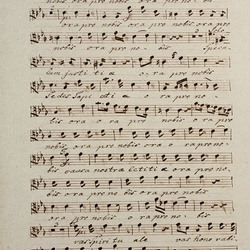 nobis ora pro nobis ora pro no- bis
ora pro nobis ora pro nobis ora pro
nobis ora pro no- bis Specu-
lum justitiæ o- ra pro nobis
Sedes Sapi- enti- æ ora pro no-
bis ora o- ra pro nobis o- ra pro
nobis ora pro nobis ora pro no-
bis causa nostræ lætitiæ ora pro no-
bis ora pro nobis ora pro nobis
ora pro nobis o- ra pro no- bis
vas spiritu- ale vas hono- ra-